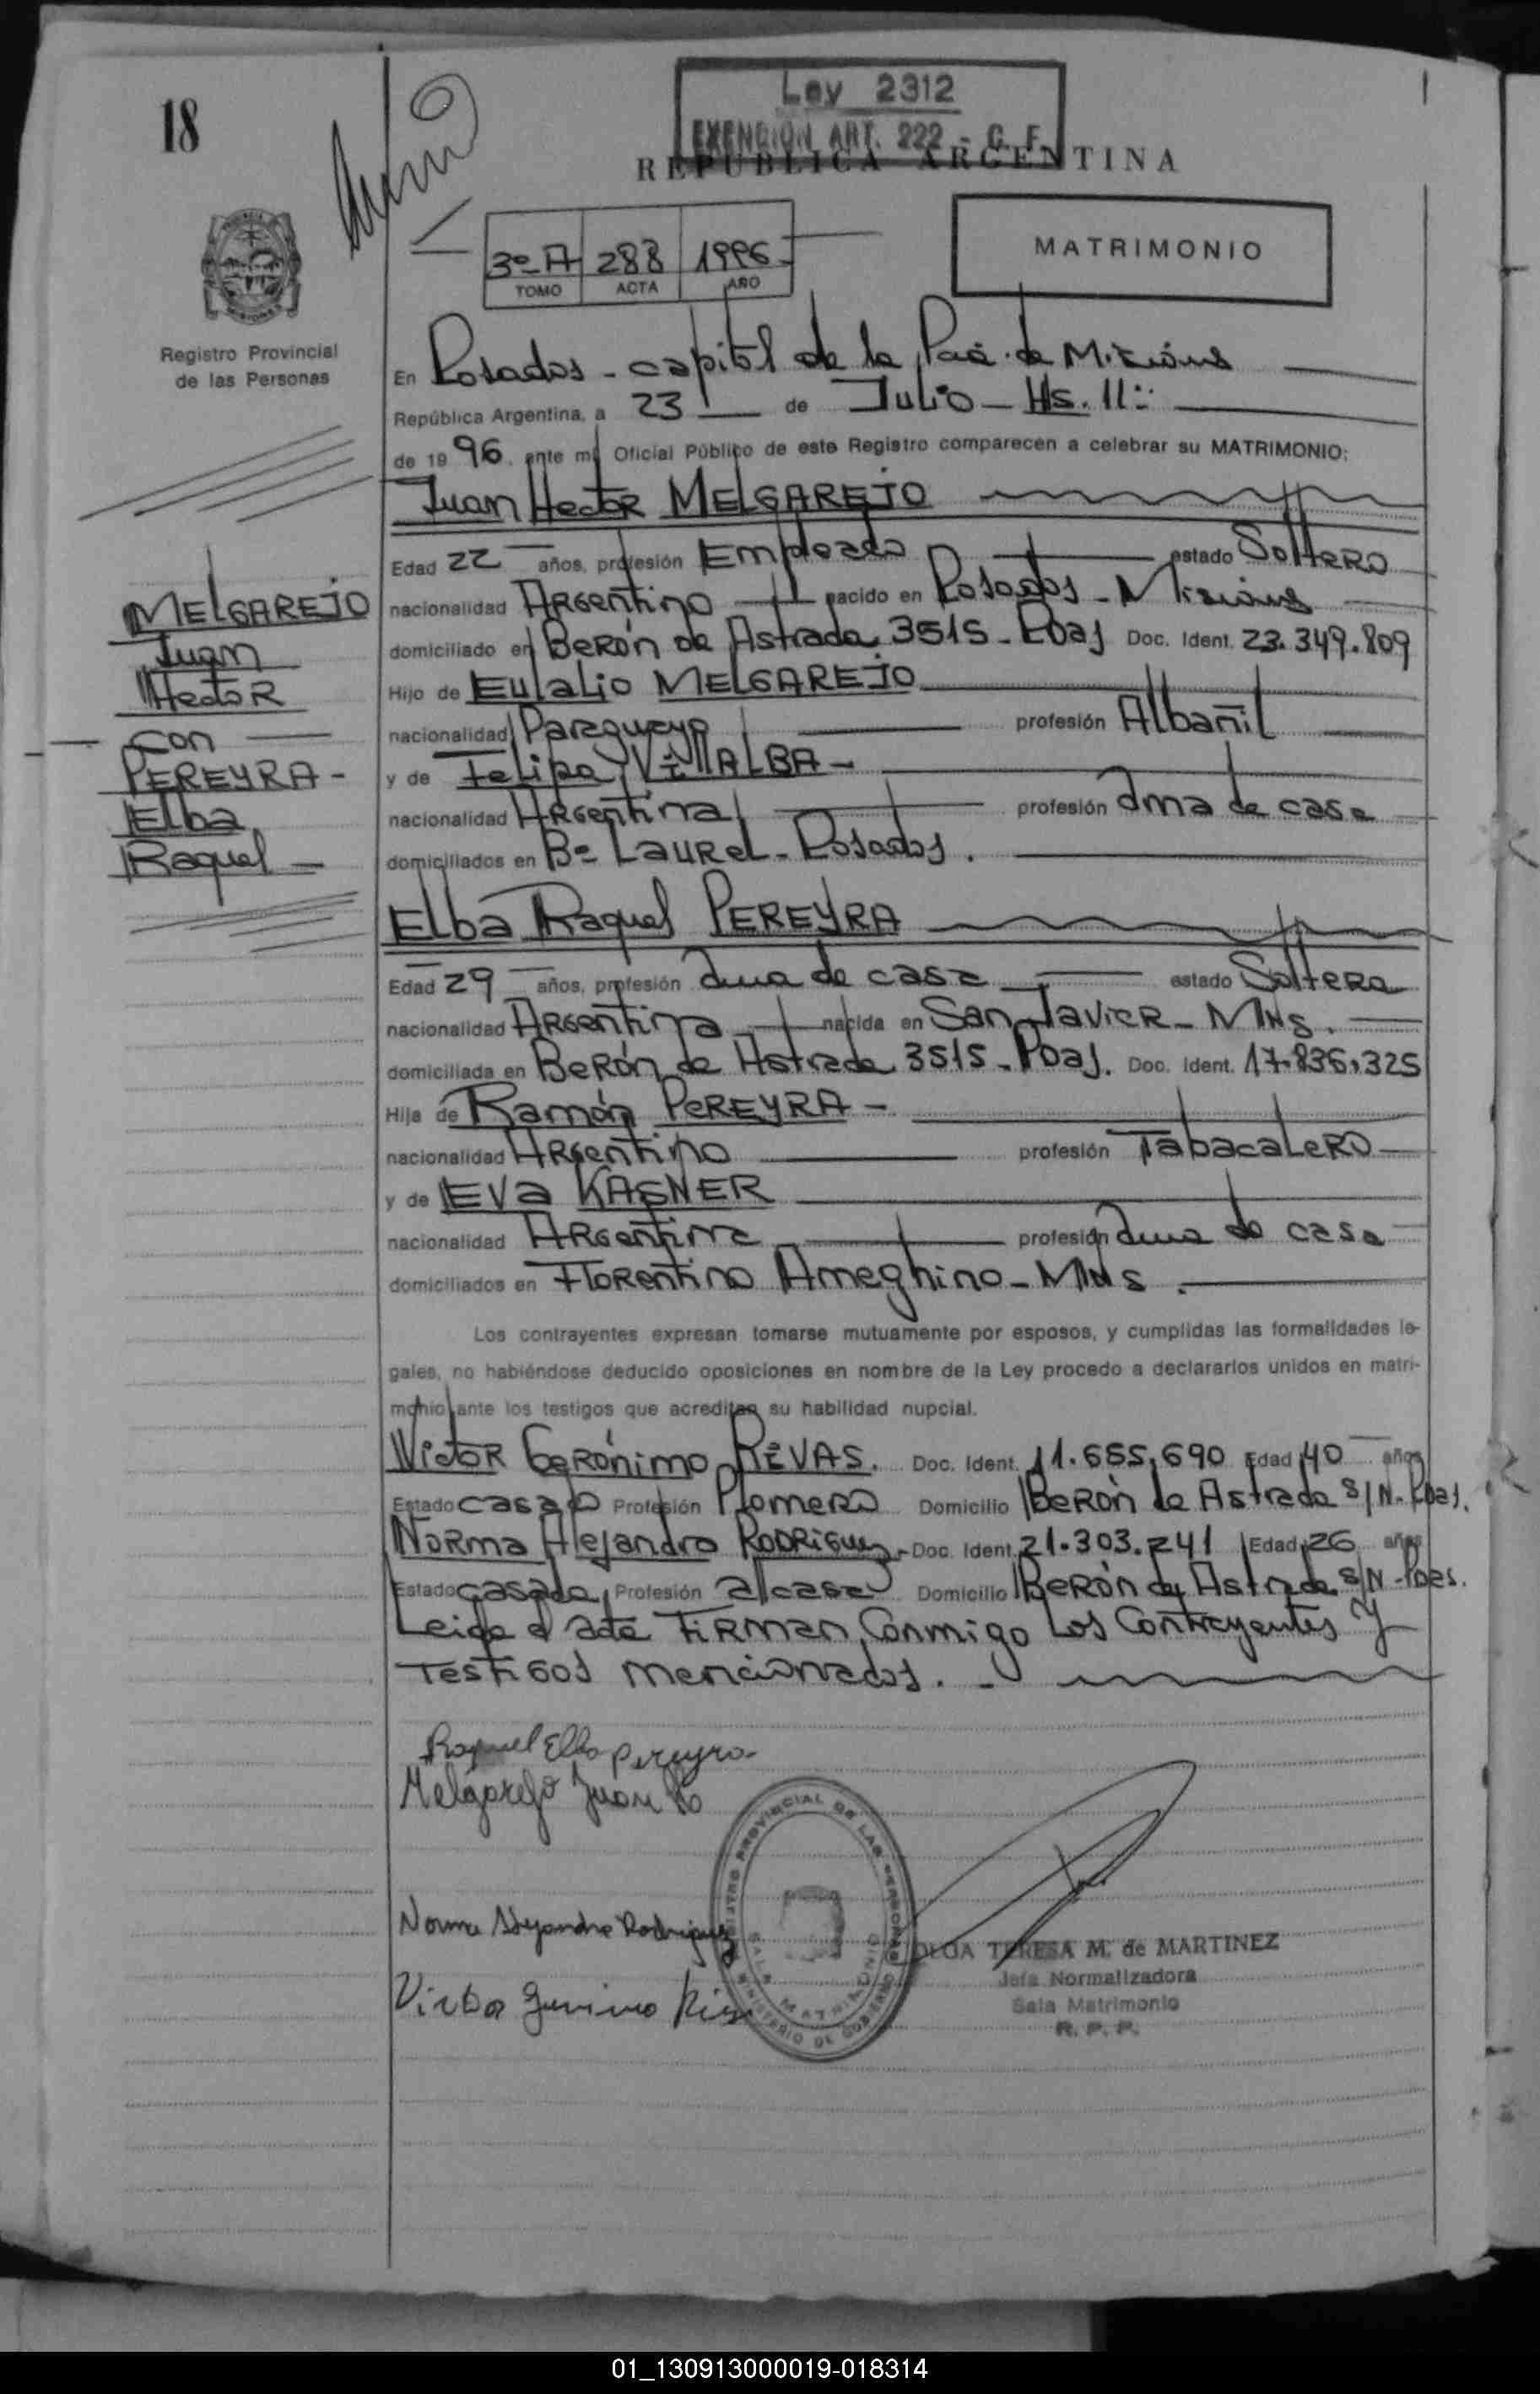 18
Ley 2312
EXENCION ART. 222 - C. F.
REPUBLICA ARGENTINA
3º A 288 1996
TOMO ACTA AÑO
MATRIMONIO
Registro Provincial
de las Personas
En Posadas - capital de la Pcia. de Misiones
República Argentina, a 23 de Julio - Hs. 11:
de 1996, ante mí Oficial Público de este Registro comparecen a celebrar su MATRIMONIO:
Juan Hector MELGAREJO
Edad 22 años, profesión Empleado estado Soltero
nacionalidad Argentino nacido en Posadas - Misiones
domiciliado en Berón de Astrada 3515 - Pdas Doc. Ident. 23.349.809
Hijo de Eulalio MELGAREJO
nacionalidad Paraguayo profesión Albañil
y de Felipa VILLALBA -
nacionalidad Argentina profesión ama de casa
domiciliados en Bº Laurel - Posadas.
MELGAREJO
Juan
Hector
con
PEREYRA -
Elba
Raquel
Elba Raquel PEREYRA
Edad 29 años, profesión ama de casa estado Soltera
nacionalidad Argentina nacida en San Javier - Mnes.
domiciliada en Berón de Astrada 3515 - Pdas. Doc. Ident. 17.836.325
Hija de Ramón PEREYRA -
nacionalidad Argentino profesión Tabacalero
y de Eva KASNER
nacionalidad Argentina profesión ama de casa
domiciliados en Florentino Ameghino - Mnes.
Los contrayentes expresan tomarse mutuamente por esposos, y cumplidas las formalidades le-
gales, no habiéndose deducido oposiciones en nombre de la Ley procedo a declararlos unidos en matri-
monio ante los testigos que acreditan su habilidad nupcial.
Victor Gerónimo RIVAS. Doc. Ident. 11.655.690 Edad 40 años
Estado casado Profesión Plomero Domicilio Berón de Astrada S/N - Pdas.
Norma Alejandra RODRIGUEZ - Doc. Ident. 21.303.241 Edad 26 años
Estado casada Profesión a/casa Domicilio Berón de Astrada S/N - Pdas.
Leida el acta firman conmigo los contrayentes y
testigos mencionados. -
Raquel Elba Pereyra
Melgarejo Juan H
Norma Alejandra Rodriguez
Victor Geronimo Rivas
REGISTRO PROVINCIAL DE LAS PERSONAS
SALA MATRIMONIO
MINISTERIO DE GOBIERNO
OLGA TERESA M. de MARTINEZ
Jefa Normalizadora
Sala Matrimonio
R. P. P.
01_130913000019-018314